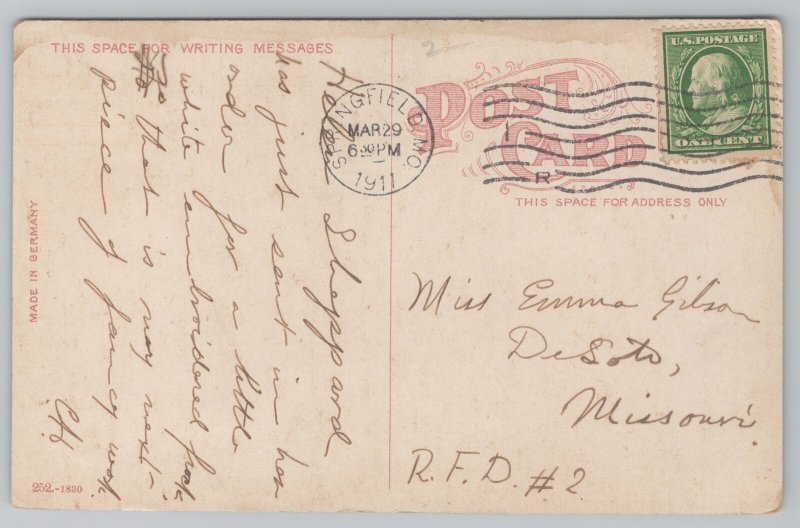 THIS SPACE FOR WRITING MESSAGES
Helen Sheppard
has just sent in her
order for a little
white embroidered frock
So that is my next
piece of fancy work.
CH
MADE IN GERMANY
252.-1830
POST CARD
THIS SPACE FOR ADDRESS ONLY
SPRINGFIELD, MO.
MAR 29
6 30 PM
1911
1
R
U.S. POSTAGE
ONE CENT
2
Miss Emma Gibson
DeSoto,
Missouri
R.F.D. #2